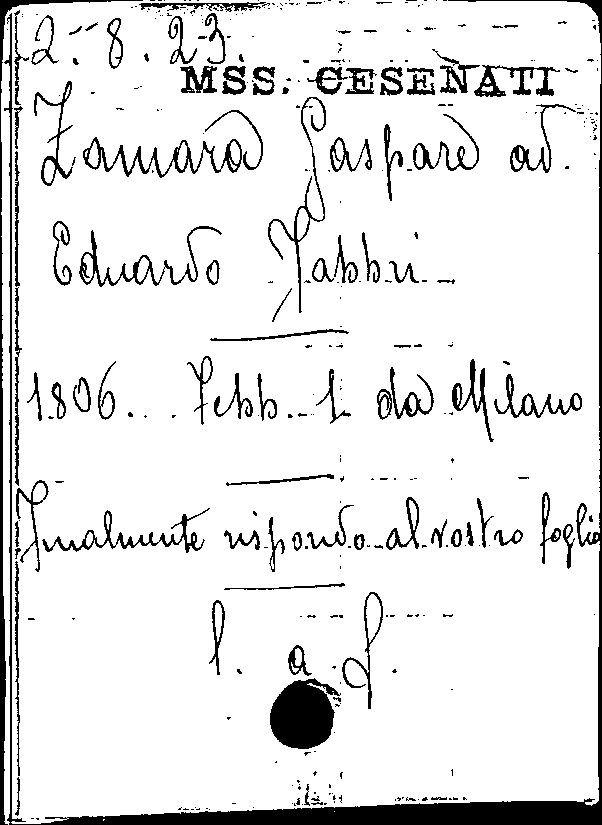 2.-8.23.
MSS. CESENATI
Zamara Gaspare ad.
Eduardo Fabbri
1806... Febb. 1 da Milano
Finalmente rispondo al vostro foglio
l. a f.